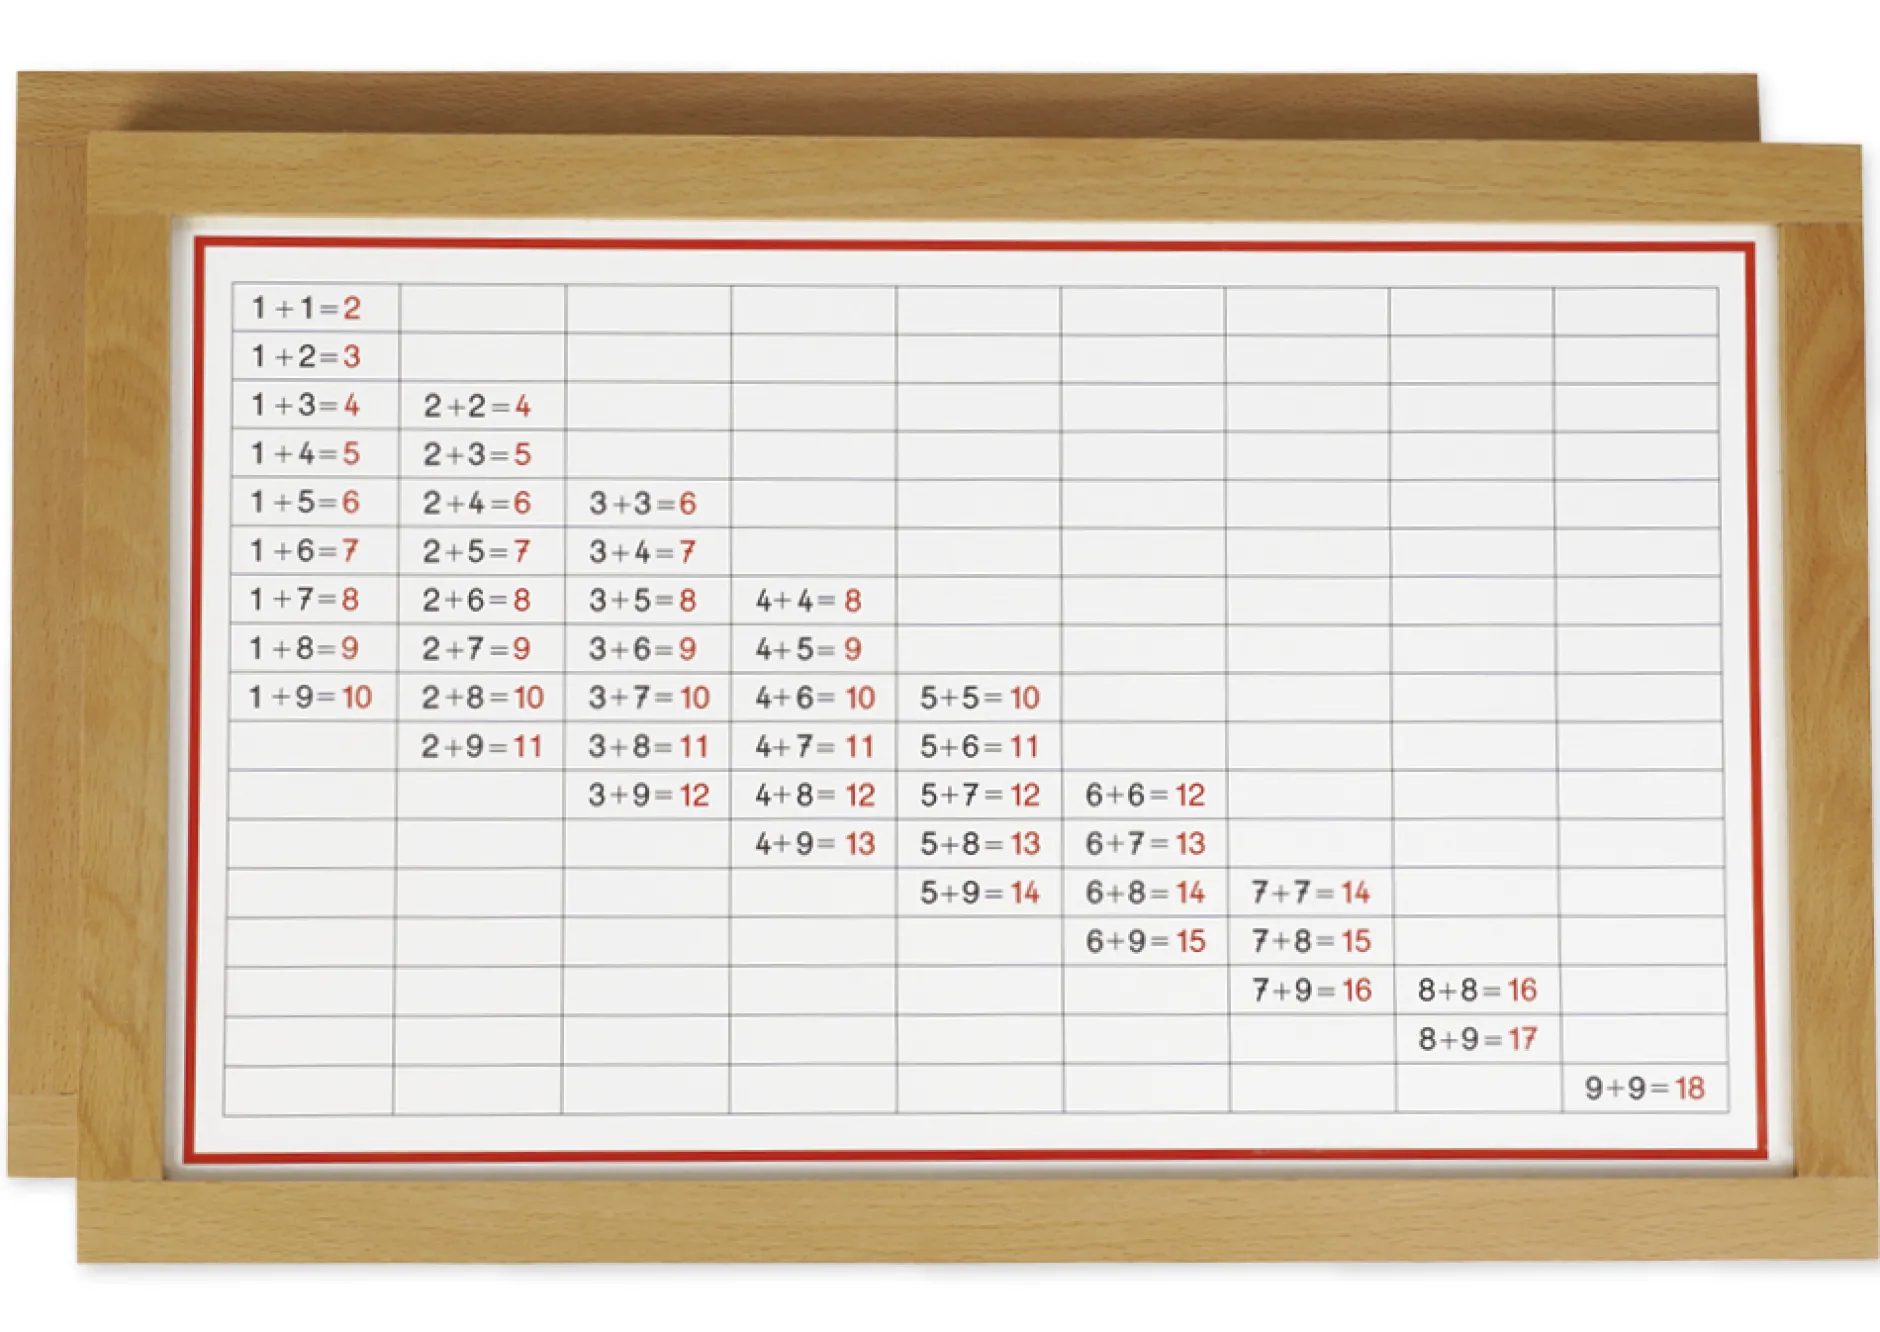 1+1=2
1+2=3
1+3=4 2+2=4
1+4=5 2+3=5
1+5=6 2+4=6 3+3=6
1+6=7 2+5=7 3+4=7
1+7=8 2+6=8 3+5=8 4+4=8
1+8=9 2+7=9 3+6=9 4+5=9
1+9=10 2+8=10 3+7=10 4+6=10 5+5=10
2+9=11 3+8=11 4+7=11 5+6=11
3+9=12 4+8=12 5+7=12 6+6=12
4+9=13 5+8=13 6+7=13
5+9=14 6+8=14 7+7=14
6+9=15 7+8=15
7+9=16 8+8=16
8+9=17
9+9=18